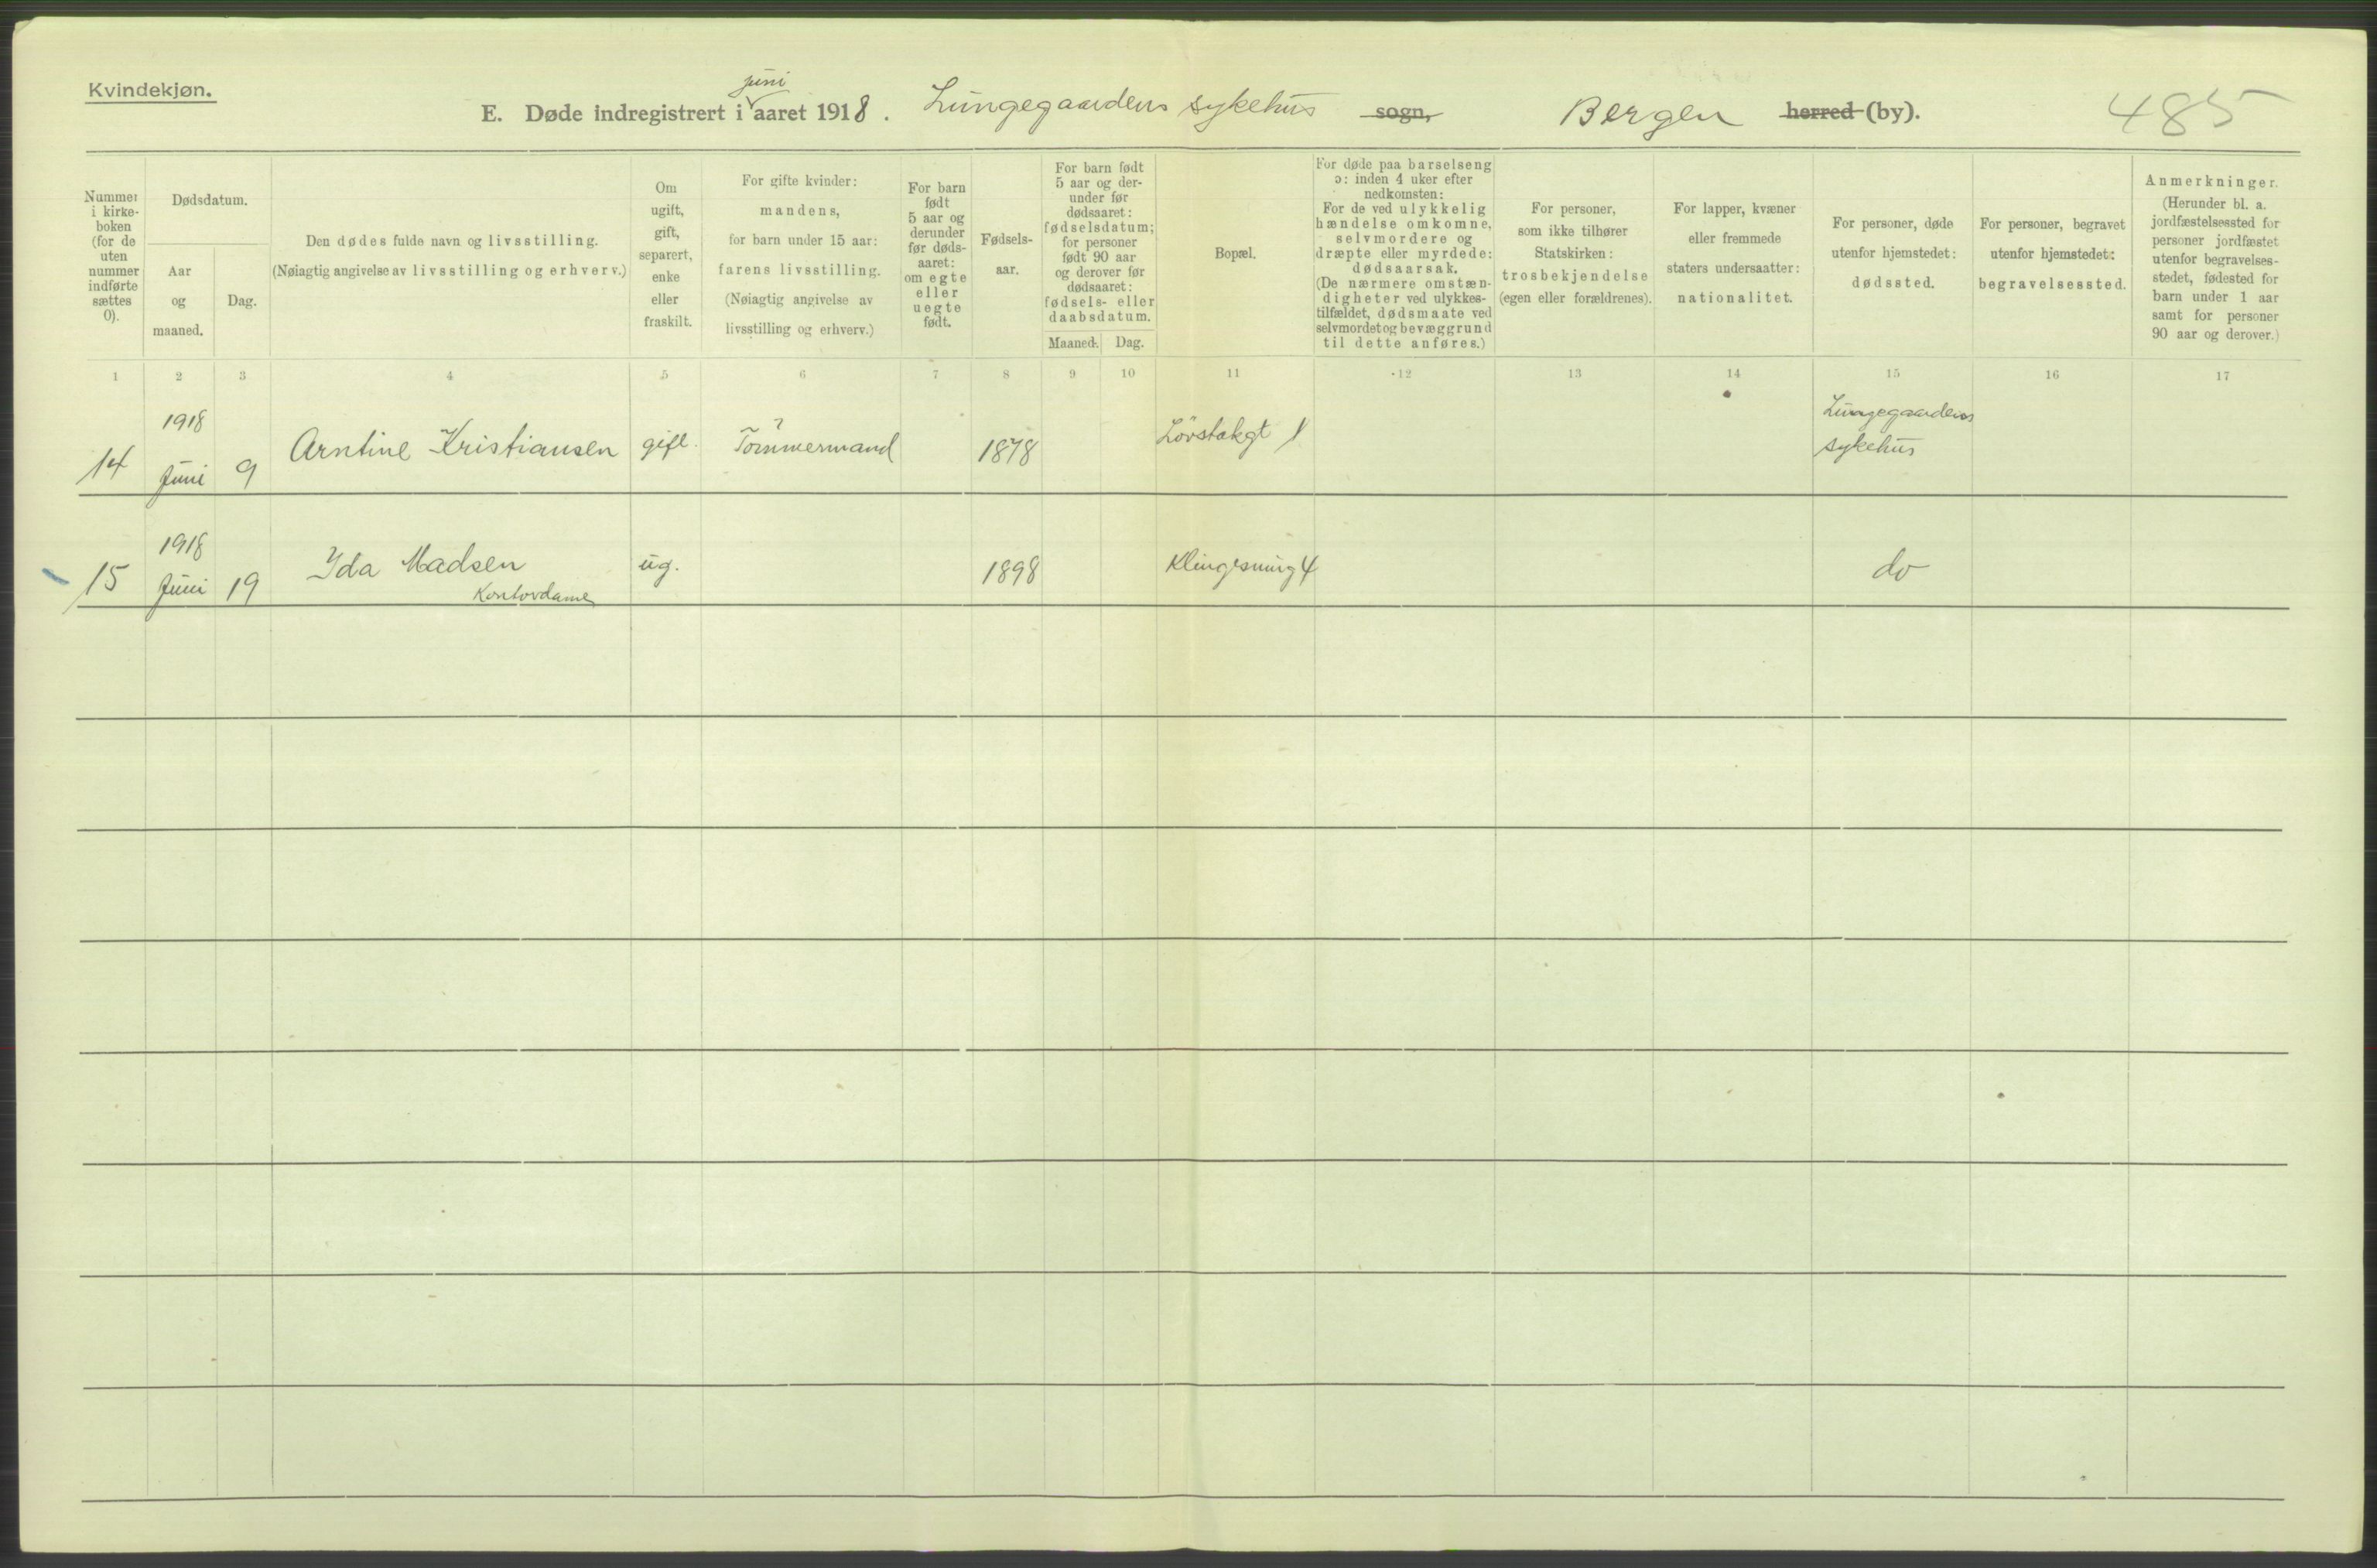 Kvindekjøn.
juni
E. Døde indregistrert i aaret 1918. Lungegaardens sykehus sogn, Bergen herred (by). 485
Nummer
i kirke-
boken
(for de
uten
nummer
indførte
sættes
0).
Dødsdatum.
Aar
og
maaned.
Dag.
Den dødes fulde navn og livsstilling.
(Nøiagtig angivelse av livsstilling og erhverv.)
Om
ugift,
gift,
separert,
enke
eller
fraskilt.
For gifte kvinder:
mandens,
for barn under 15 aar:
farens livsstilling.
(Nøiagtig angivelse av
livsstilling og erhverv.)
For barn
født
5 aar og
derunder
før døds-
aaret:
om egte
eller
uegte
født.
Fødsels-
aar.
For barn født
5 aar og der-
under før
dødsaaret:
fødselsdatum;
for personer
født 90 aar
og derover før
dødsaaret:
fødsels- eller
daabsdatum.
Maaned.
Dag.
Bopæl.
For døde paa barselseng
ɔ: inden 4 uker efter
nedkomsten:
For de ved ulykkelig
hændelse omkomne,
selvmordere og
dræpte eller myrdede:
dødsaarsak.
(De nærmere omstæn-
digheter ved ulykkes-
tilfældet, dødsmaate ved
selvmordet og bevæggrund
til dette anføres.)
For personer,
som ikke tilhører
Statskirken:
trosbekjendelse
(egen eller forældrenes).
For lapper, kvæner
eller fremmede
staters undersaatter:
nationalitet.
For personer, døde
utenfor hjemstedet:
dødssted.
For personer, begravet
utenfor hjemstedet:
begravelsessted.
Anmerkninger.
(Herunder bl. a.
jordfæstelsessted for
personer jordfæstet
utenfor begravelses-
stedet, fødested for
barn under 1 aar
samt for personer
90 aar og derover.)
1 2 3 4 5 6 7 8 9 10 11 12 13 14 15 16 17
1918
14 Juni 9 Arntine Kristiansen gift. Tømmermand ? 1878 Lövstakgt 1 Lungegaardens
sykehus
1918
15 Juni 19 Ida Madsen ug. 1898 Klingesmug 4 do
Kontordame